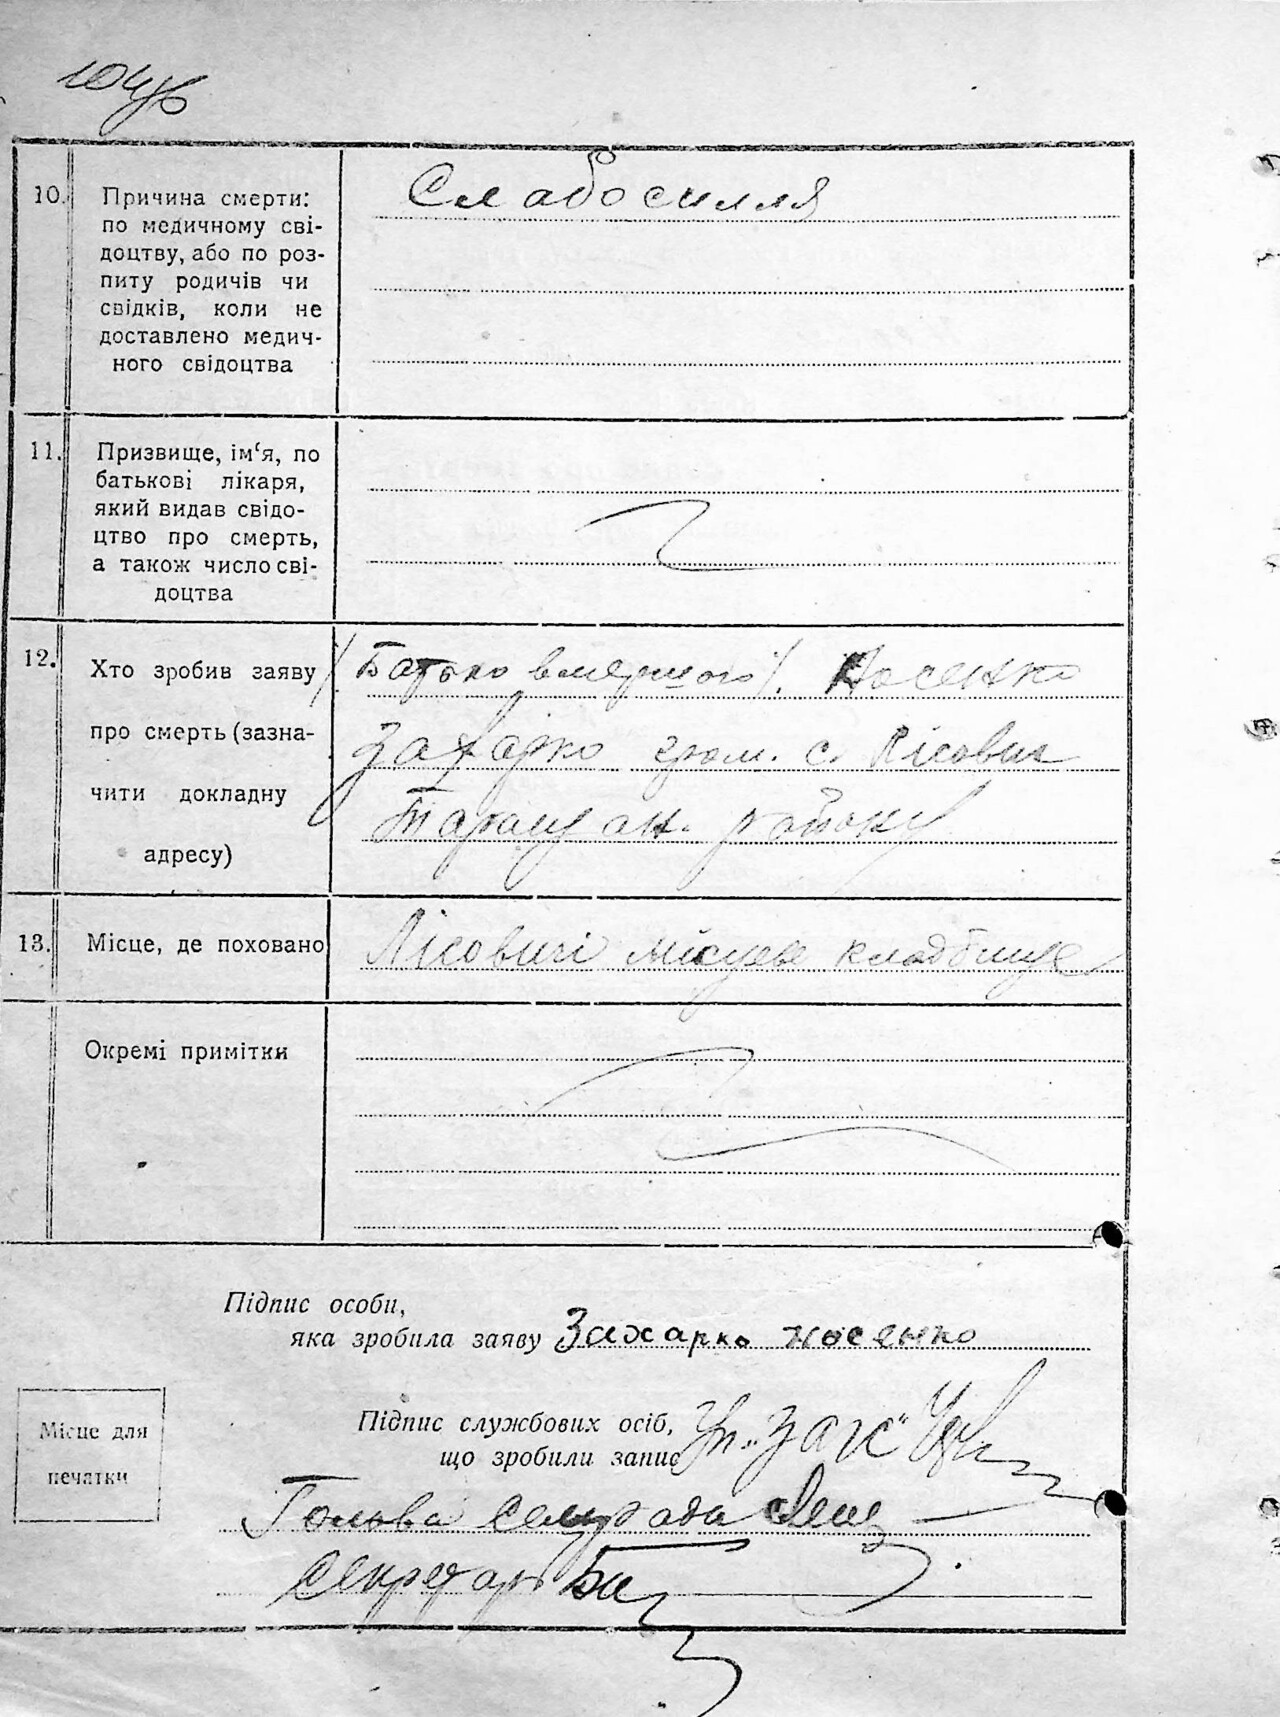 10.
Причина смерти:
по медичному сві-
доцтву, або по роз-
питу родичів чи
свідків, коли не
доставлено медич-
ного свідоцтва
Слабосилля
11.
Призвище, ім‘я, по
батькові лікаря,
який видав свідо-
цтво про смерть,
а також число сві-
доцтва
12.
Хто зробив заяву
про смерть (зазна-
чити докладну
адресу)
/Батько вмершого/. Носенко
Захарко гром. с. Лісович
Таращан. району
13.
Місце, де поховано
Лісовичі місцеве кладбище
Окремі примітки
Підпис особи,
яка зробила заяву Захарко носенко
Місце для
печатки
Підпис службових осіб,
що зробили запис Уп. „ЗАГС“
Голова сельрада
Секретарь